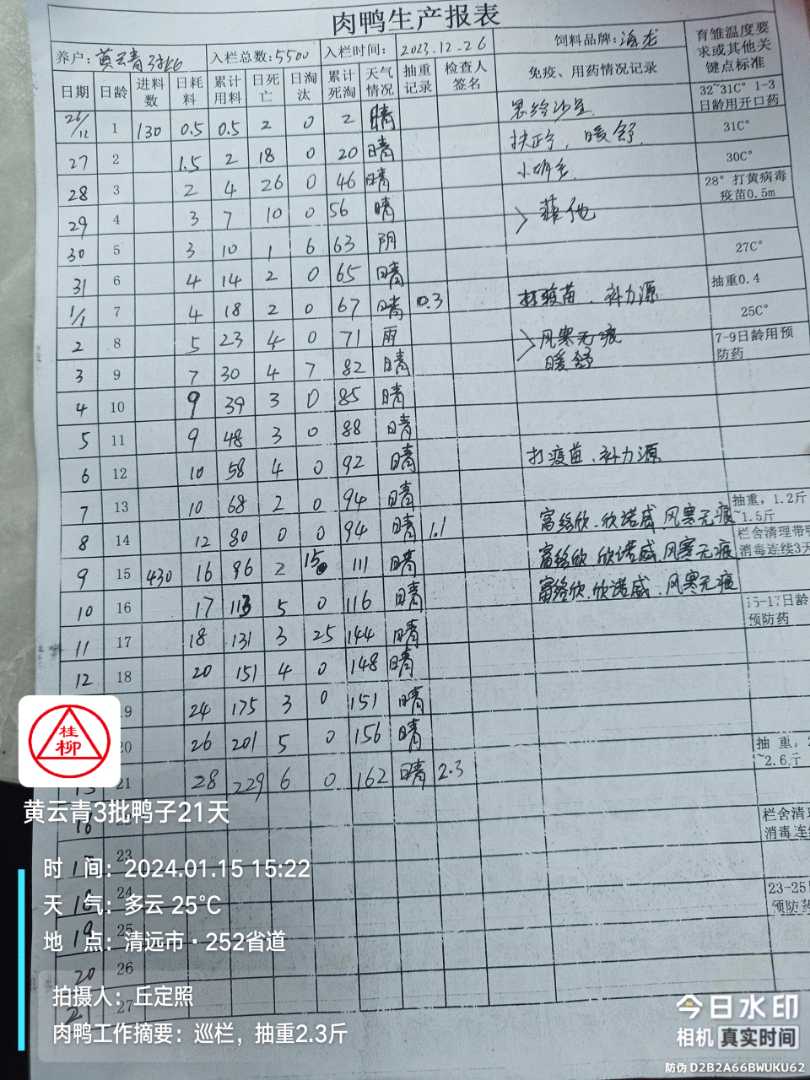 肉鸭生产报表
养户: 黄云青3批 入栏总数:5500 入栏时间: 2023.12.26 饲料品牌:海龙 育雏温度要求或其他关键点标准
日期 日龄 进料数 日耗料 累计用料 日死亡 日淘汰 累计死淘 天气情况 抽重记录 检查人签名 免疫、用药情况记录
26/12 1 130 0.5 0.5 2 0 2 晴 32~31C° 1-3日龄用开口药
27 2 1.5 2 18 0 20 晴 扶正宁,暖舒 31C°
28 3 2 4 26 0 46 晴 30C°
29 4 3 7 10 0 56 晴 28° 打黄病毒疫苗0.5m
30 5 3 10 1 6 63 阴 27C°
31 6 4 14 2 0 65 晴 抽重0.4
1/1 7 4 18 2 0 67 晴 0.3 打疫苗、补力源 25C°
2 8 5 23 4 0 71 雨 风寒无痕 7-9日龄用预防药
3 9 7 30 4 7 82 晴 暖舒
4 10 9 39 3 0 85 晴
5 11 9 48 3 0 88 晴
6 12 10 58 4 0 92 晴 打疫苗、补力源
7 13 10 68 2 0 94 晴 抽重,1.2斤~1.5斤
8 14 12 80 0 0 94 晴 1.1 富络欣、欣诺威、风寒无痕 栏舍清理带 消毒连续3天
9 15 430 16 96 2 15 111 晴 富络欣、欣诺威、风寒无痕
10 16 17 113 5 0 116 晴 富络欣、欣诺威、风寒无痕 15-17日龄 预防药
11 17 18 131 3 25 144 晴
12 18 20 151 4 0 148 晴
19 24 175 3 0 151 晴
20 26 201 5 0 156 晴 抽重, ~2.6斤
21 28 229 6 0 162 晴 2.3
16 栏舍清 消毒连
23
18 24 23-25 预防药
19 25
20 26
21 27
桂柳
黄云青3批鸭子21天
时 间: 2024.01.15 15:22
天 气: 多云 25℃
地 点: 清远市·252省道
拍摄人: 丘定照
肉鸭工作摘要: 巡栏,抽重2.3斤
今日水印
相机 真实时间
防伪 D2B2A66BWUKU62